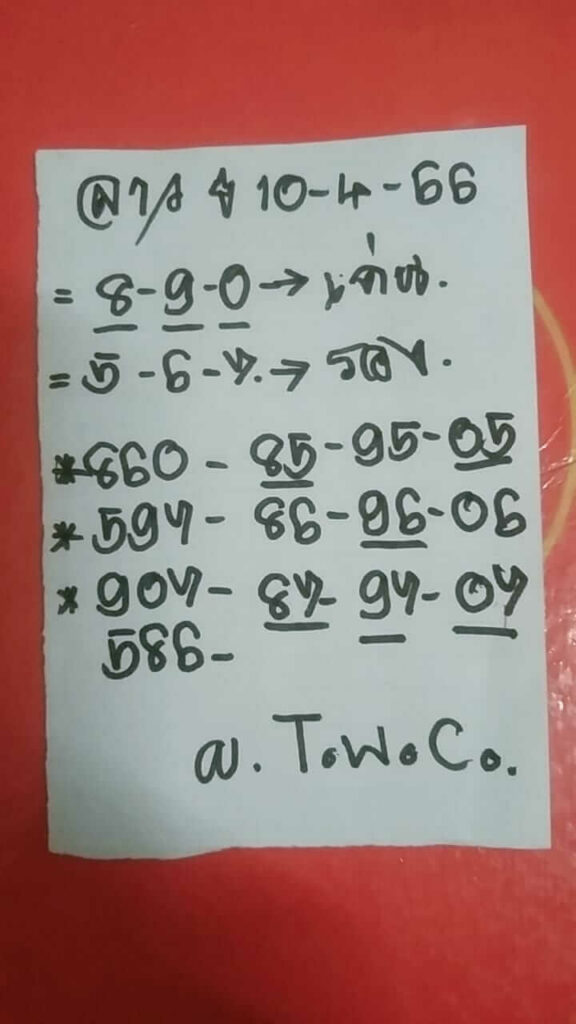 ลาว จ 10-4-66
= 8-9-0→ เด่น.
= 5-6-7.→ รอง.
*860 - 85-95-05
*597- 86-96-06
*907- 87-97-07
586-
a. T.W.Co.